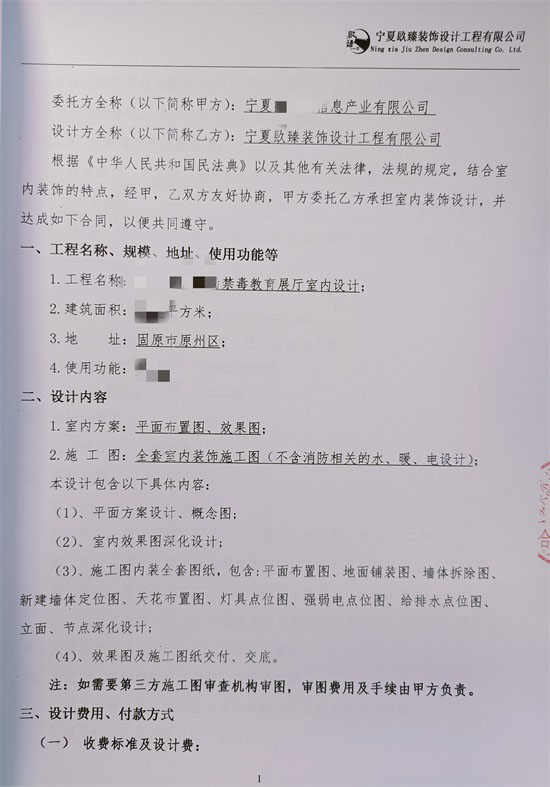 宁夏臤臻装饰设计工程有限公司
Ning xia Jiu Zhen Design Consulting Co. Ltd.
委托方全称（以下简称甲方）：宁夏 信息产业有限公司
设计方全称（以下简称乙方）：宁夏臤臻装饰设计工程有限公司
根据《中华人民共和国民法典》以及其他有关法律，法规的规定，结合室
内装饰的特点，经甲，乙双方友好协商，甲方委托乙方承担室内装饰设计，并
达成如下合同，以便共同遵守。
一、工程名称、规模、地址、使用功能等
1.工程名称： 禁毒教育展厅室内设计；
2.建筑面积： 平方米；
3.地 址：固原市原州区；
4.使用功能：
二、设计内容
1.室内方案：平面布置图、效果图；
2.施 工 图：全套室内装饰施工图（不含消防相关的水、暖、电设计）；
本设计包含以下具体内容：
（1）、平面方案设计、概念图；
（2）、室内效果图深化设计；
（3）、施工图内装全套图纸，包含：平面布置图、地面铺装图、墙体拆除图、
新建墙体定位图、天花布置图、灯具点位图、强弱电点位图、给排水点位图、
立面、节点深化设计；
（4）、效果图及施工图纸交付、交底。
注：如需要第三方施工图审查机构审图，审图费用及手续由甲方负责。
三、设计费用、付款方式
（一） 收费标准及设计费：
1